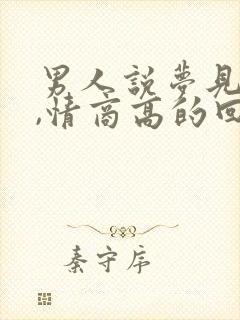 男人說夢見
,情商高的回
秦守序